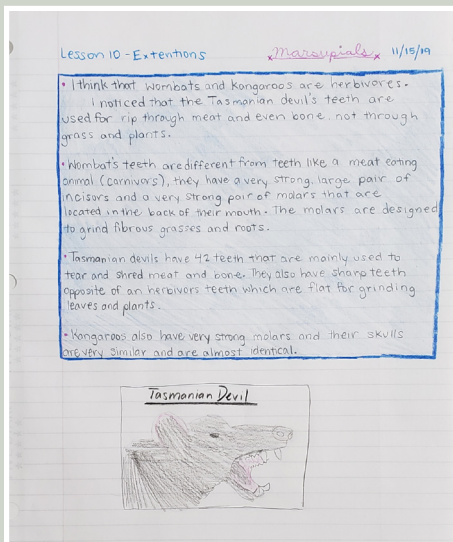 Lesson 10 - Extentions
Marsupials
11/15/19
• I think that Wombats and Kangaroos are herbivores.
I noticed that the Tasmanian devil's teeth are
used for rip through meat and even bone, not through
grass and plants.
• Wombat's teeth are different from teeth like a meat eating
animal (carnivors), they have a very strong, large pair of
incisors and a very strong pair of molars that are
located in the back of their mouth. The molars are designed
to grind fibrous grasses and roots.
• Tasmanian devils have 42 teeth that are mainly used to
tear and shred meat and bone. They also have sharp teeth
opposite of an herbivors teeth which are flat for grinding
leaves and plants.
• Kangaroos also have very strong molars and their skulls
are very similar and are almost identical.
Tasmanian Devil